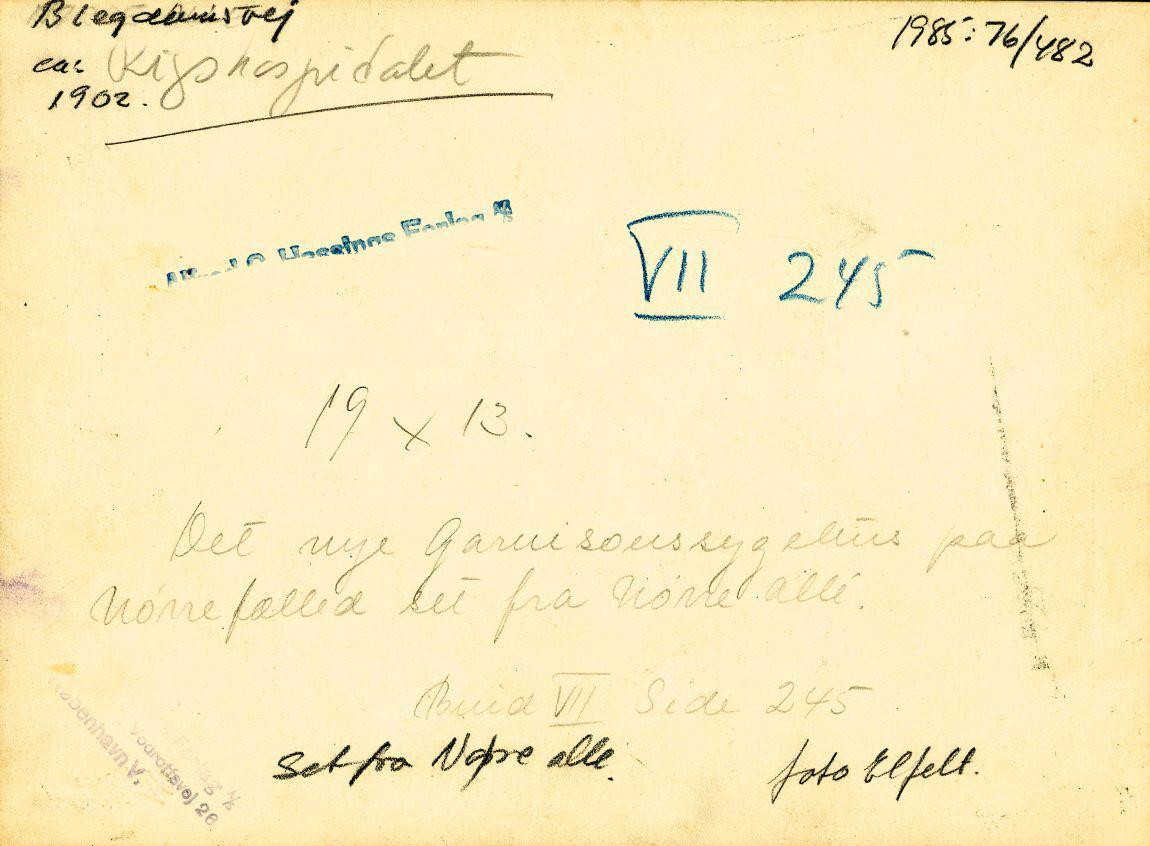 Blegdamsvej
1985:76/482
ca:
1902.
Rigshospitalet
Alfred G. Hassings Forlag A/S
VII 245
19 x 13.
Det nye Garnisonssygehus paa
Nörrefælled set fra Nörre allé.
Bind VII Side 245
Set fra Nørre alle.
foto Elfelt.
Forlag A/S
Vodroffsvej 26
København V.